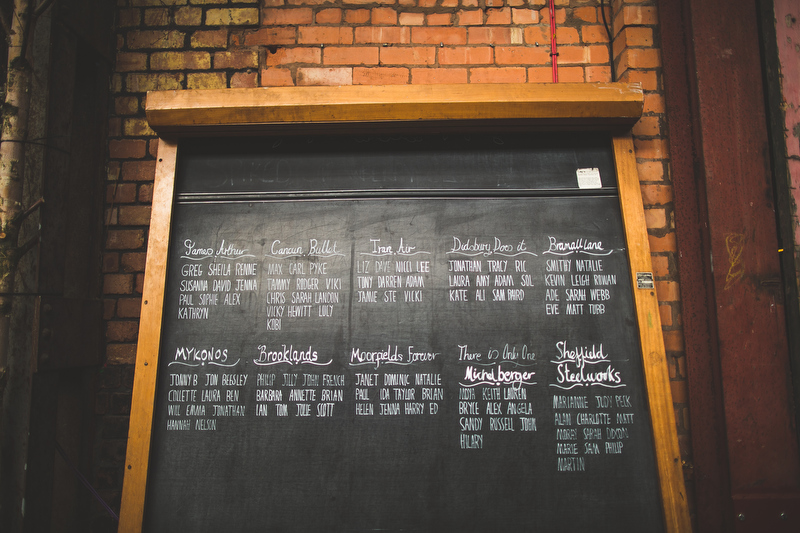 James Arthur
GREG SHEILA RENNE
SUSANNA DAVID JENNA
PAUL SOPHIE ALEX
KATHRYN
Cancun Ballet
MAX CARL PYKE
TAMMY RODGER VIKI
CHRIS SARAH LANDON
VICKY HEWITT LULY
KOBI
Iran Air
LIZ DAVE NICCI LEE
TINY DARREN ADAM
JAMIE STE VICKI
Didsbury Does it
JONATHAN TRACY RIC
LAURA AMY ADAM SOL
KATE ALI SAM
Bramall Lane
SMITHY NATALIE
KEVIN LEIGH ROWAN
ADE SARAH WEBB
EVE MATT TUBB
MYKONOS
JONNY B JON BEEGLEY
COLLETTE LAURA BEN
WILL EMMA JONATHAN
HANNAH NELSON
Brooklands
PHILIP JILLY JOHN FRENCH
BARBARA ANNETTE BRIAN
IAN TOM JULIE SCOTT
Moorfields Forever
JANET DOMINIC NATALIE
PAUL IDA TAYLOR BRIAN
HELEN JENNA HARRY ED
There is Only One
Michelberger
KEITH LAUREN
BRYCE ALEX ANGELA
SANDY RUSSELL JOHN
HILARY
Sheffield
Steelworks
MARIANNE JUDY PECK
ALAN CHARLOTTE MATT
SARAH DIXON
MARIE SAM PHILIP
MARTIN